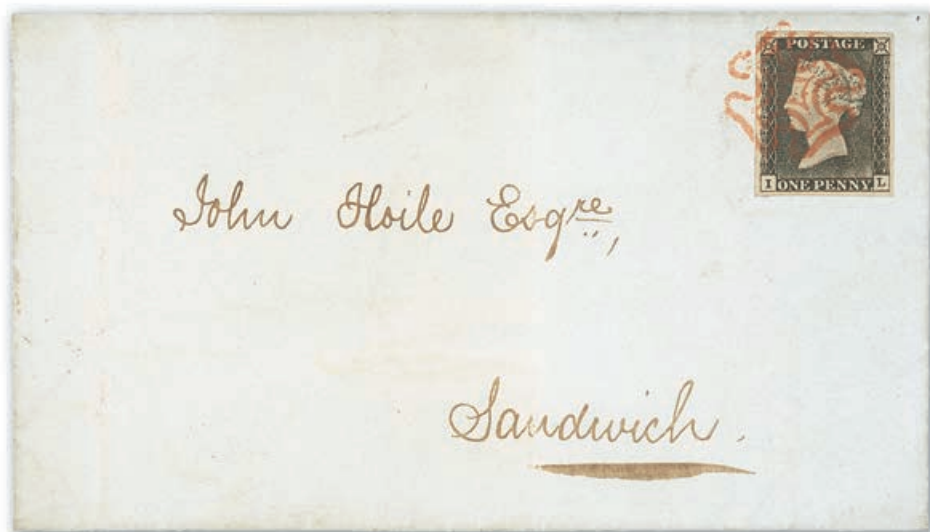 POSTAGE
I ONE PENNY L
John Hoile Esqre,
Sandwich.